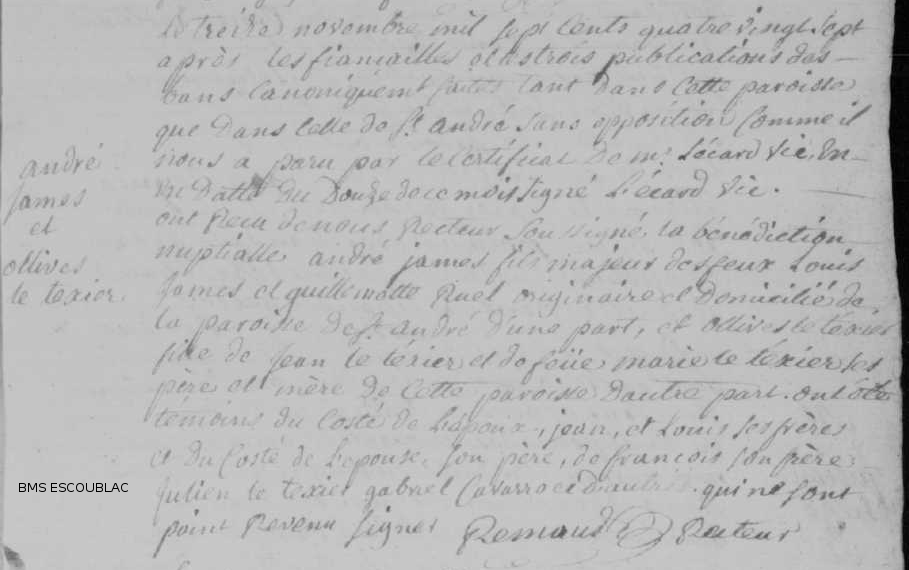 le treize novembre mil sept cents quatre vingt sept
après les fiancailles et les trois publications des
bans Canoniquemt faites tant Dans Cette paroisse
que Dans Celle de St andré sans opposition Comme il
nous a paru par le Certificat De mr Lécard Vic. En
Datte Du Douze de ce mois signé Lécard Vic.
ont Recu de nous Recteur Soussigné la bénédiction
nuptialle andré james fils majeur des feux Louis
James et guillemette Ruel originaire et Domicilié de
la paroisse de St andré d'une part, et ollives le téxier
fille de jean le téxier et de feüe marie le téxier ses
père et mère de Cette paroisse d'autre part. ont été
témoins du Costé de L'epoux, jean, et Louis ses frères
et Du Costé de L'epouse, son père, de francois son frère
Julien le texier gabriel et d'autres qui ne sont
point Revenu signer Recteur
andré
james
et
ollives
le texier
BMS ESCOUBLAC